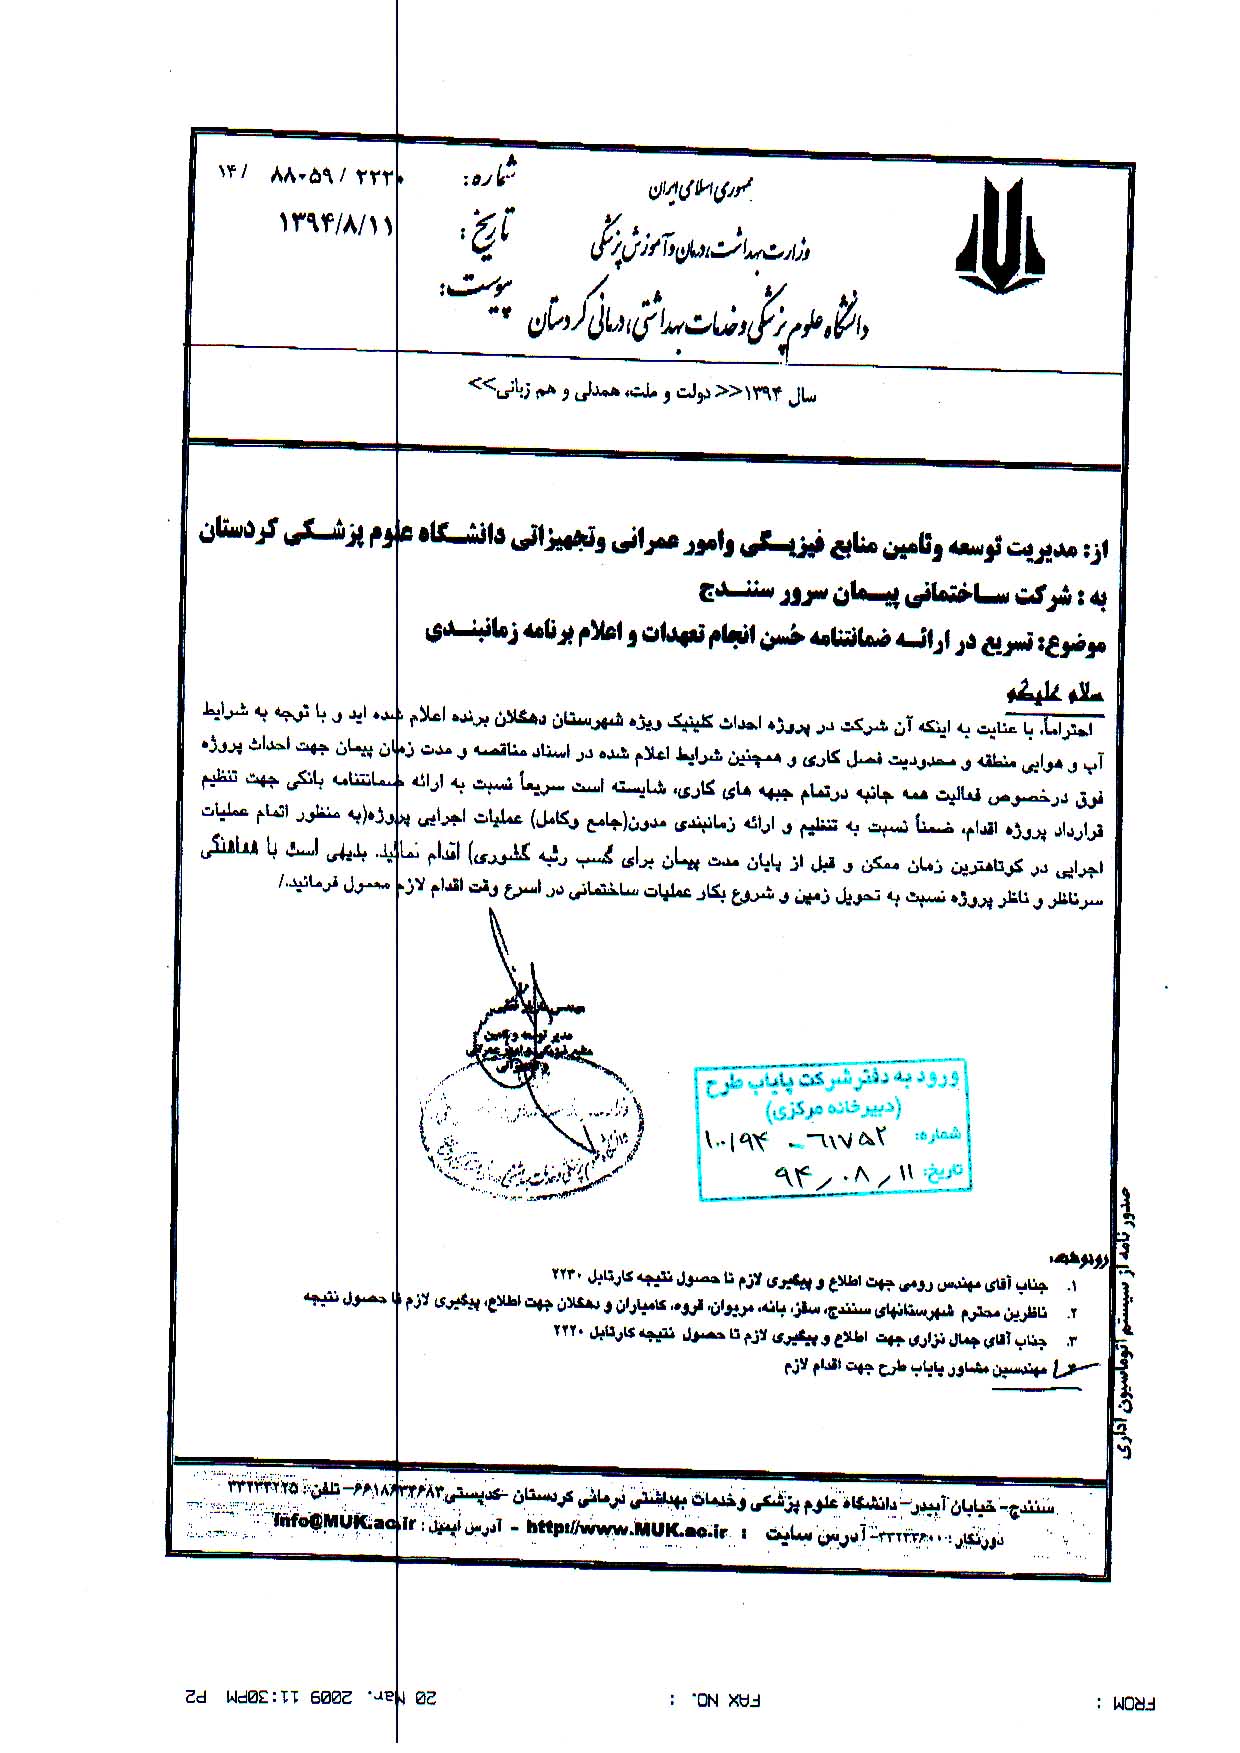 جمهوری اسلامی ایران
وزارت بهداشت، درمان و آموزش پزشکی
دانشگاه علوم پزشکی و خدمات بهداشتی، درمانی کردستان
شماره: ۱۴/ ۸۸۰۵۹/ ۲۲۲۰
تاریخ: ۱۳۹۴/۸/۱۱
پیوست:
سال ۱۳۹۴<< دولت و ملت، همدلی و هم زبانی>>
از: مدیریت توسعه وتامین منابع فیزیکی وامور عمرانی وتجهیزاتی دانشگاه علوم پزشکی کردستان
به : شرکت ساختمانی پیمان سرور سنندج
موضوع: تسریع در ارائه ضمانتنامه حُسن انجام تعهدات و اعلام برنامه زمانبندی
سلام علیکم
احتراماً، با عنایت به اینکه آن شرکت در پروژه احداث کلینیک ویژه شهرستان دهگلان برنده اعلام شده اید و با توجه به شرایط
آب و هوایی منطقه و محدودیت فصل کاری و همچنین شرایط اعلام شده در اسناد مناقصه و مدت زمان پیمان جهت احداث پروژه
فوق درخصوص فعالیت همه جانبه درتمام جبهه های کاری، شایسته است سریعاً نسبت به ارائه ضمانتنامه بانکی جهت تنظیم
قرارداد پروژه اقدام، ضمناً نسبت به تنظیم و ارائه زمانبندی مدون(جامع وکامل) عملیات اجرایی پروژه(به منظور اتمام عملیات
اجرایی در کوتاهترین زمان ممکن و قبل از پایان مدت پیمان برای کسب رتبه کشوری) اقدام نمائید. بدیهی است با هماهنگی
سرناظر و ناظر پروژه نسبت به تحویل زمین و شروع بکار عملیات ساختمانی در اسرع وقت اقدام لازم معمول فرمائید./
مهندس
مدیر توسعه و تامین
منابع فیزیکی و امور عمرانی
و تجهیزاتی
ورود به دفتر شرکت پایاب طرح
(دبیرخانه مرکزی)
شماره: ۱۰۰/۹۴ - ۶۱۷۵۲
تاریخ: ۹۴/۰۸/۱۱
رونوشت:
۱. جناب آقای مهندس رومی جهت اطلاع و پیگیری لازم تا حصول نتیجه کارتابل ۲۲۳۰
۲. ناظرین محترم شهرستانهای سنندج، سقز، بانه، مریوان، قروه، کامیاران و دهگلان جهت اطلاع، پیگیری لازم تا حصول نتیجه
۳. جناب آقای جمال نزاری جهت اطلاع و پیگیری لازم تا حصول نتیجه کارتابل ۲۲۲۰
۴. مهندسین مشاور پایاب طرح جهت اقدام لازم
صدور نامه از سیستم اتوماسیون اداری
سنندج- خیابان آبیدر- دانشگاه علوم پزشکی وخدمات بهداشتی درمانی کردستان -کدپستی۶۶۱۸۶۳۴۶۸۳- تلفن: ۳۳۲۳۳۲۲۵
دورنگار: ۳۳۲۳۳۶۰۰- آدرس سایت : http://www.MUK.ac.ir - آدرس ایمیل : Info@MUK.ac.ir
FROM : FAX NO. : 20 Mar. 2009 11:30PM P2